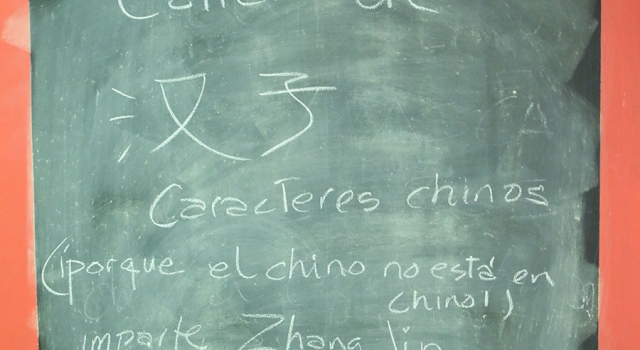 汉子
Caracteres chinos
(¡porque el chino no está en
chino!)
imparte Zhang